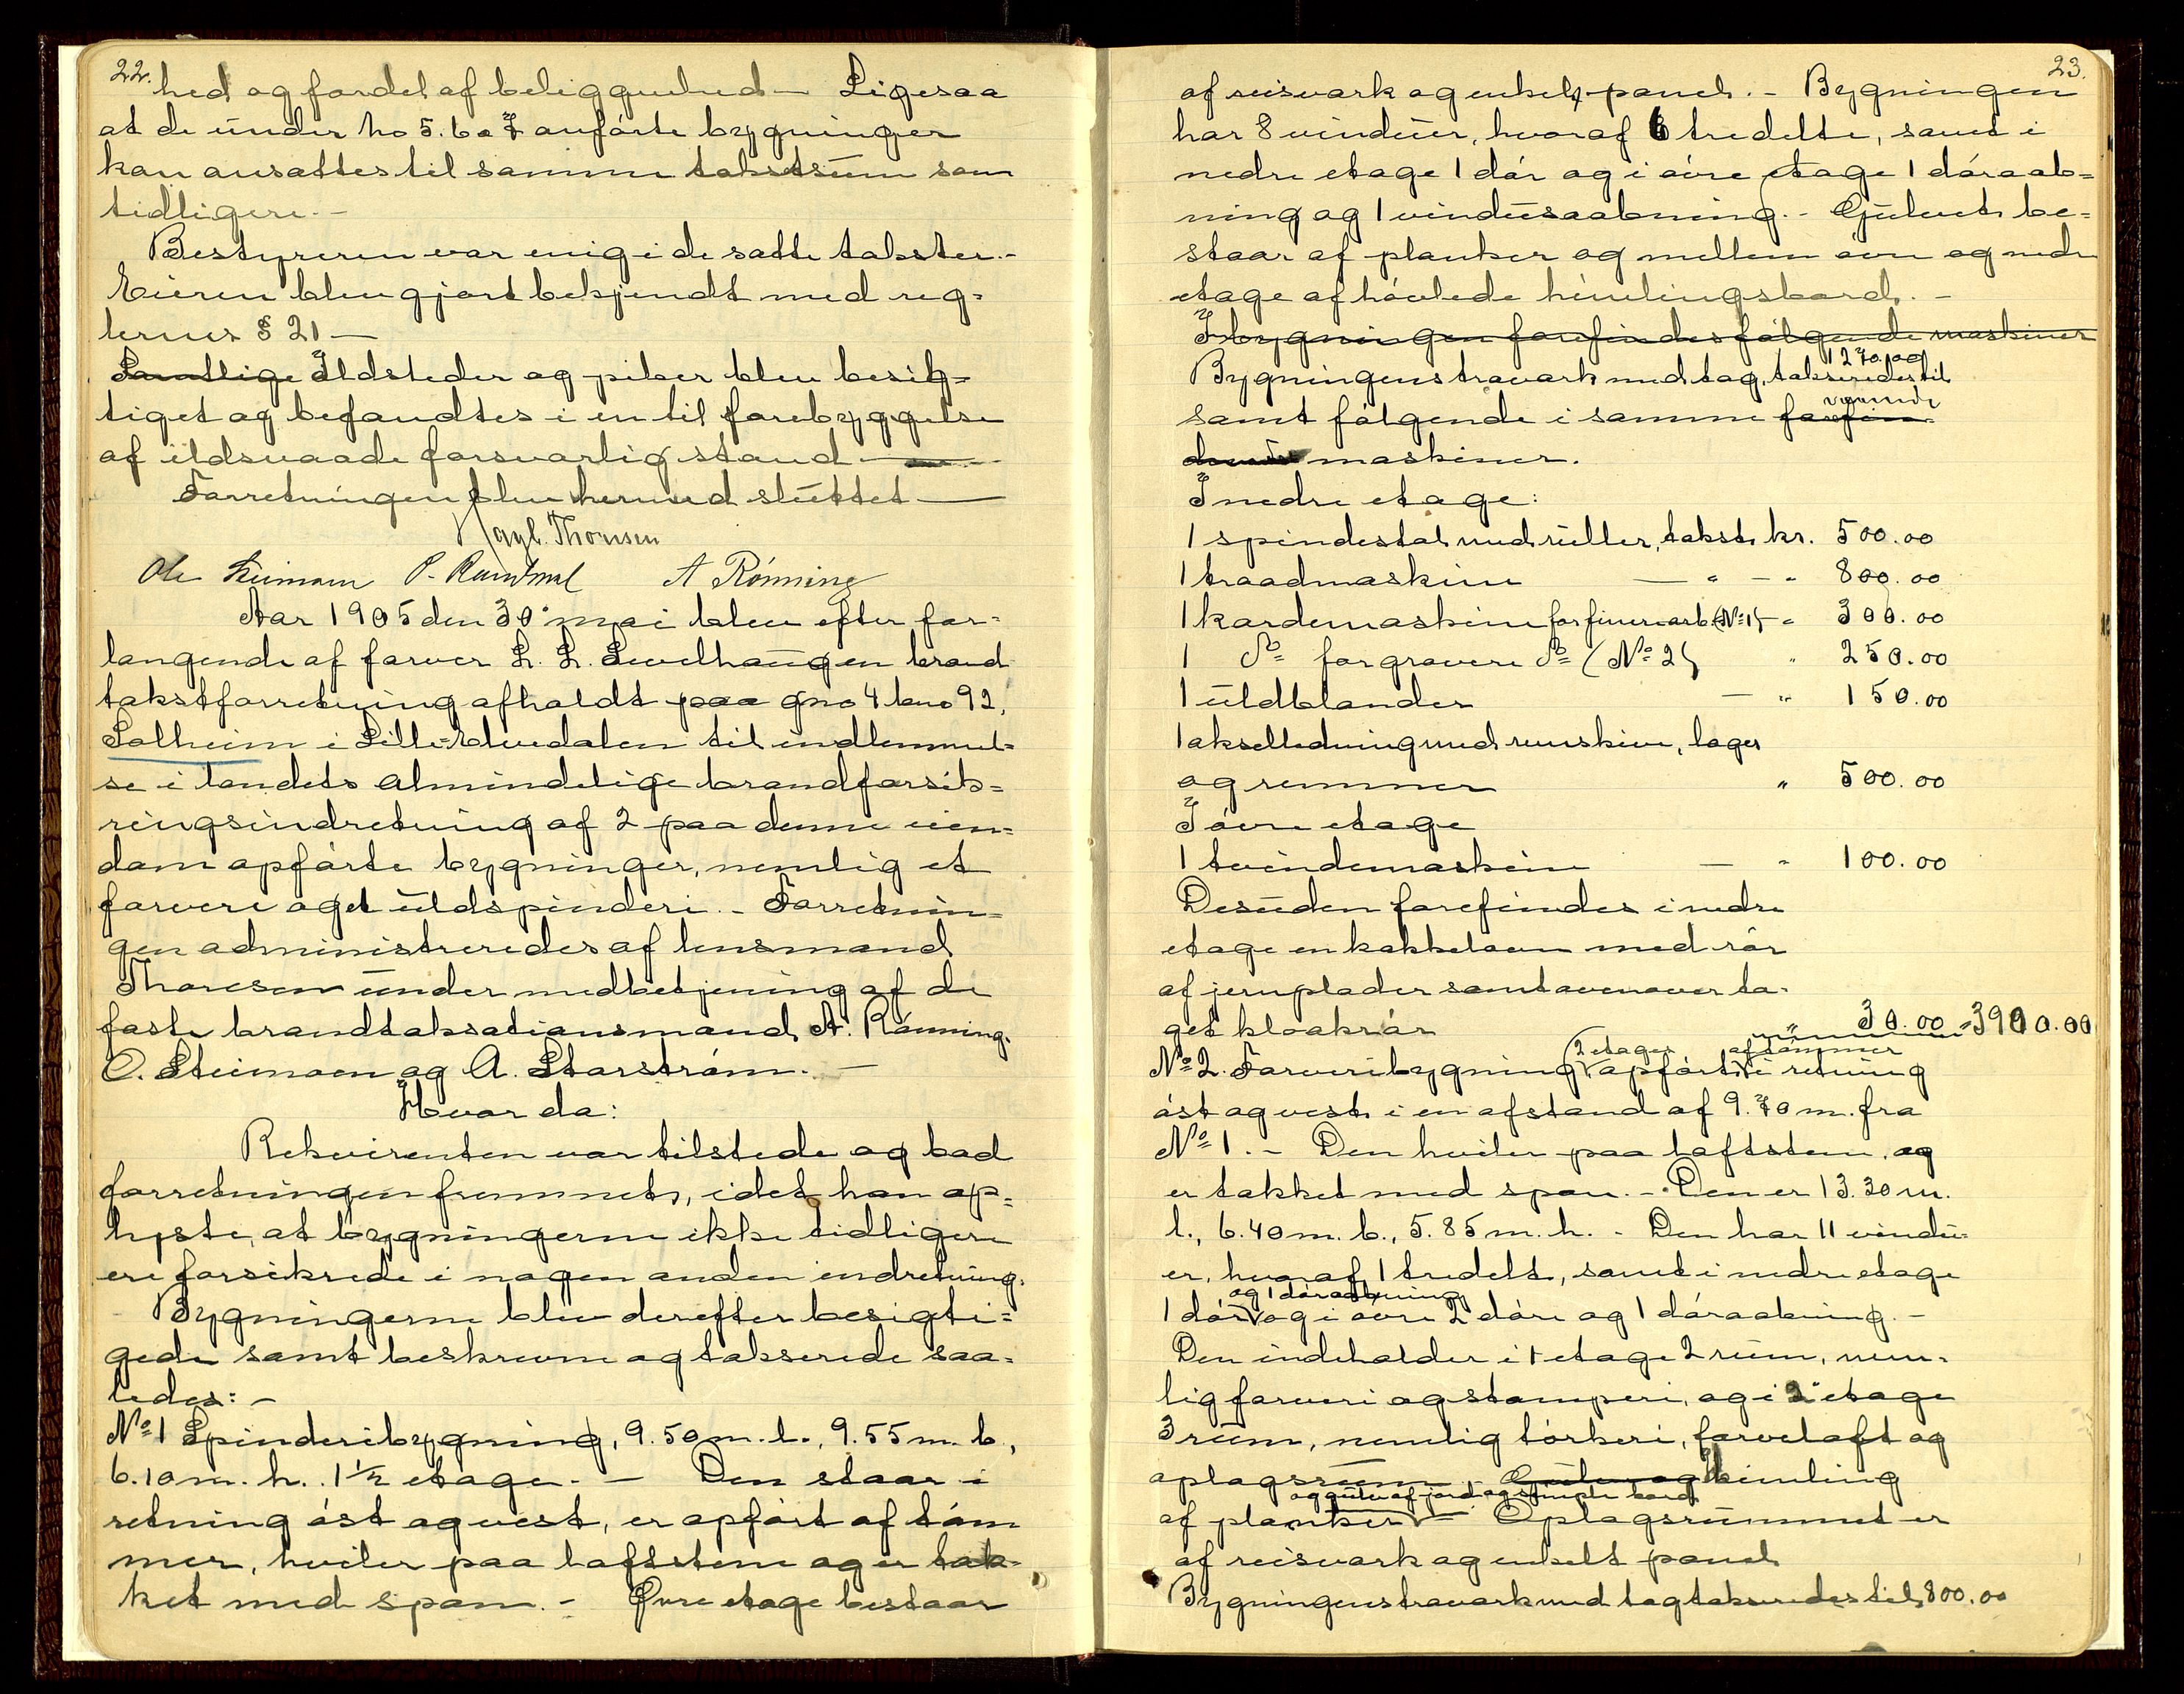 22.
hed og fordel af beliggenhed – Ligesaa
at de under No 5. 6 o 7 anførte bygninger
kan ansættes til samme takstsum som
tidligere. –
Bestyreren var enig i de satte takster. –
Eieren blev gjort bekjendt med reg-
lernes § 21 –
Samtlige Ildsteder og piber blev besig-
tiget og befandtes i en til forebyggelse
af ildsvaade forsvarlig stand –
Forretningen blev hermed sluttet –
Hagb. Thoresen
Ole Steimoen P. Ramsmoel A Rønning
Aar 1905 den 30' mai blev efter for-
langende af farver L. L. Sevelhaugen brand
takstforretning afholdt paa gno 4 bno 92,
Solheim i Lille-Elvedalen til indlemmel-
se i landets almindelige brandforsik-
ringsindretning af 2 paa denne eien-
dom opførte bygninger, nemlig et
farveri og et uldspinderi. – Forretnin-
gen administreredes af lensmand
Thoresen under medbetjening af de
faste brandtaksationsmænd A. Rønning.
O. Steimoen og A. Storstrøm. –
Hvor da:
Rekvirenten var tilstede og bad
forretningen fremmet, idet han op-
lyste, at bygningerne ikke tidligere
ere forsikrede i nogen anden indretning.
Bygningerne blev derefter besigti-
gede samt beskrevne og takserede saa-
ledes: –
No 1 Spinderibygning, 9.50 m. l., 9.55 m. b.,
6.10 m. h. 1 ½ etage. – Den staar i
retning øst og vest, er opført af tøm
mer, hviler paa loftstene og er tæk-
ket med spon. – Øvre etage bestaar
23.
af reisværk og enkelt panel. – Bygningen
har 8 vinduer, hvoraf 6 tredelte, samt i
nedre etage 1 dør og i øvre etage 1 døraab-
ning og 1 vinduesaabning. – Gulvet be-
staar af planker og mellem øvre og nedre
etage af høvlede himlingsbord. –
I bygningen forefindes følgende maskiner
1270.00
Bygningens træværk med tag, takseredes til
værende
samt følgende i samme forefin-
dende maskiner.
I nedre etage:
1 spindestol med ruller, takst kr. 500.00
1 traadmaskine — " — " 800.00
1 kardemaskine for finere arb. (No 1) – " 300.00
1 do for grovere do (No 2) " 250.00
1 uldblander — " 150.00
1 akselledning med remskive, lager
og remmer " 500.00
I øvre etage
1 tvindemaskine — " 100.00
Desuden forefindes i nedre
etage en kakkelovn med rør
af jernplader samt ovenover ta-
get kloakrør " 30.00 = 3900.00
2 etager af tømmer
No 2. Farveribygning, opført i retning
øst og vest i en afstand af 9.70 m. fra
No 1. – Den hviler paa loftsten, og
er tækket med spon. – Den er 13.30 m.
l., 6.40 m. b., 5.85 m. h. – Den har 11 vindu-
er, hvoraf 1 tredelt, samt i nedre etage
og 1 døraabning
1 dør og i øvre 2 døre og 1 døraabning. –
Den indeholder i 1 etage 2 rum, nem-
lig farveri og stamperi, og i 2' etage
3 rum, nemlig tørkeri, farveloft og
oplagsrum. – Gulv og himling
og gulv af jord og simple bord
af planker – Oplagsrummet er
af reisværk og enkelt panel
Bygningens træværk med tag takseredes til 800.00